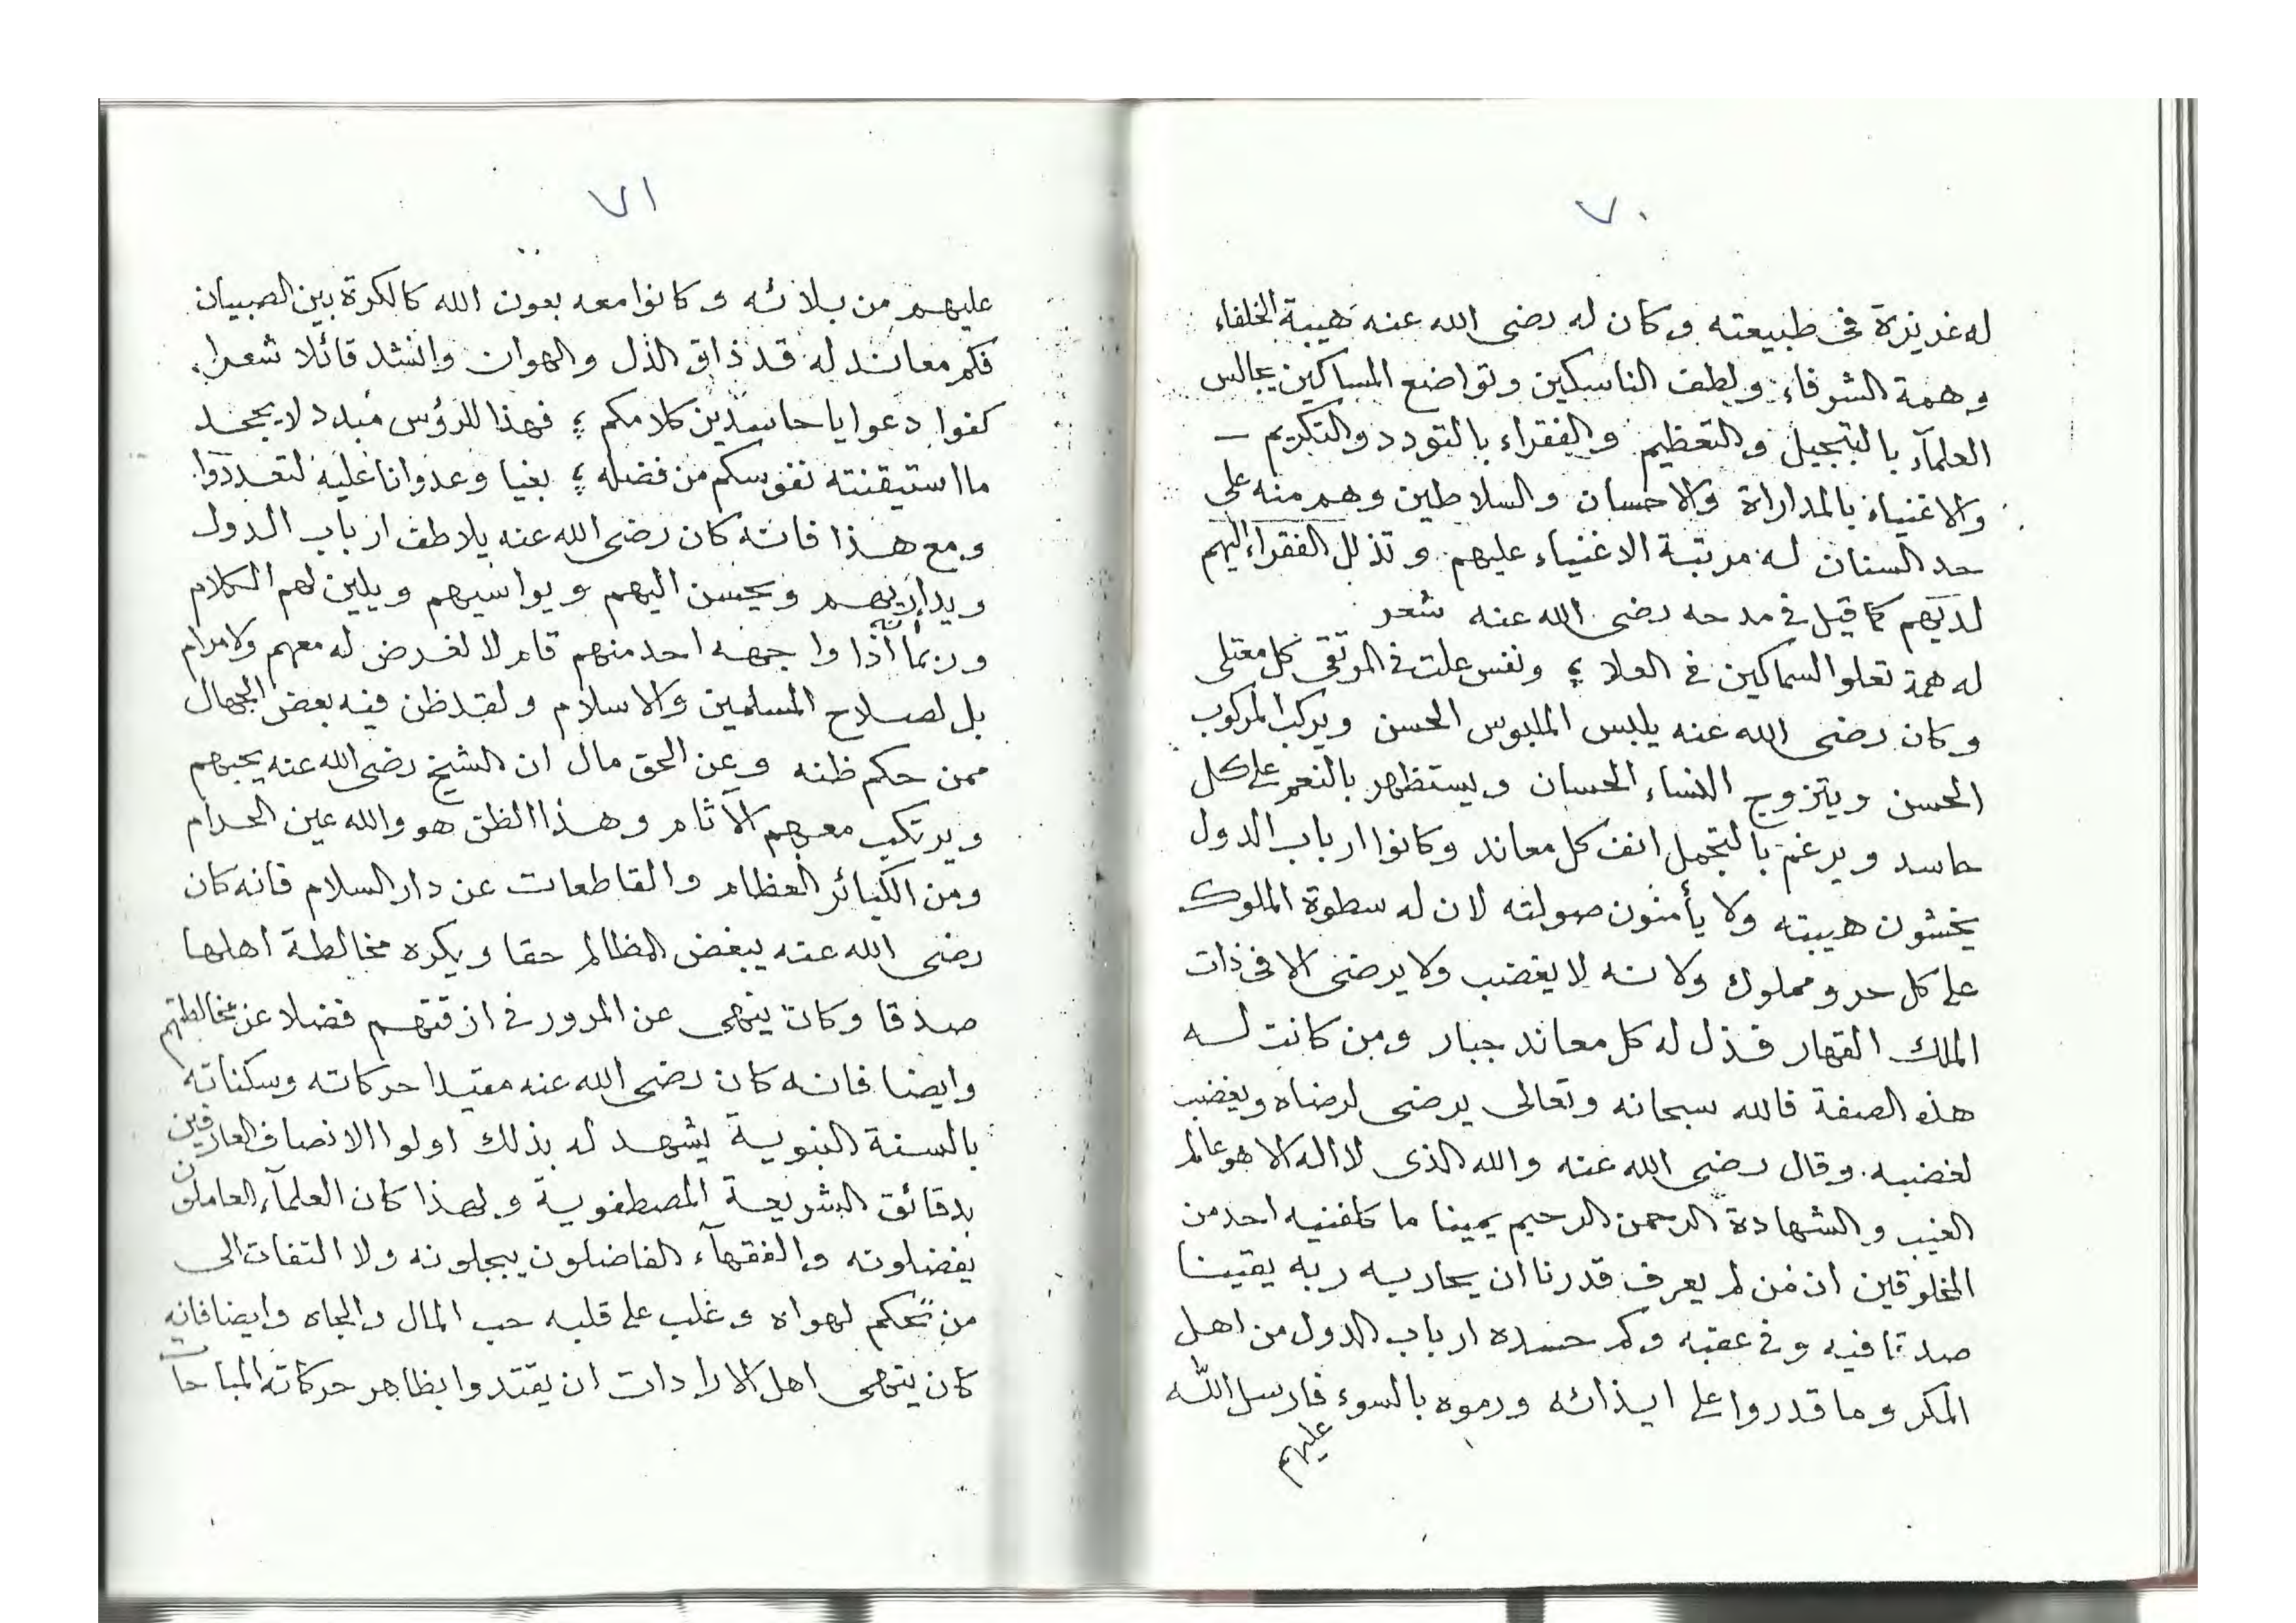 ٧٠
له غريزة فى طبيعته وكان له رضى الله عنه هيبة الخلفاء
وهمة الشرفاء ولطف الناسكين وتواضع المساكين يجالس
العلمآء بالتبجيل والتعظيم والفقراء بالتودد والتكريم
والاغنياء بالمداراة والاحسان والسلاطين وهم منه على
حد السنان له مرتبة الاغنياء عليهم وتذلل الفقراء اليهم
لديهم كما قيل فى مدحه رضى الله عنه شعر
له همة تعلو السماكين فى العلا ؛ ونفس علت فى المرتقى كل معتلى
وكان رضى الله عنه يلبس الملبوس الحسن ويركب المركوب
الحسن ويتزوج النساء الحسان ويستظهر بالنعم على كل
حاسد ويرغم بالتجمل انف كل معاند وكانوا ارباب الدول
يخشون هيبته ولا يأمنون صولته لان له سطوة الملوك
على كل حر ومملوك ولانه لا يغضب ولا يرضى الا فى ذات
الملك القهار فذل له كل معاند جبار ومن كانت له
هذه الصفة فالله سبحانه وتعالى يرضى لرضاه ويغضب
لغضبه وقال رضى الله عنه والله الذى لا اله الا هو عالم
الغيب والشهادة الرحمن الرحيم يمينا ما كلفنيه احد من
المخلوقين ان من لم يعرف قدرنا ان يحاربه ربه يقينا
صدقا فيه وفى عقبه وكم حسده ارباب الدول من اهل
المكر وما قدروا على ايذائه ورموه بالسوء فارسل الله
عليهم
٧١
عليهم من بلائه وكانوا معه بعون الله كالكرة بين الصبيان
فكم معاند له قد ذاق الذل والهوان وانشد قائلا شعرا
كفوا دعوا يا حاسدين كلامكم ؛ فهذا للرؤس مبدد لا يجحد
ما استيقنته نفوسكم من فضله ؛ بغيا وعدوانا عليه لتعددوا
ومع هذا فانه كان رضى الله عنه يلاطف ارباب الدول
ويداريهم ويحسن اليهم ويواسيهم ويلين لهم الكلام
وربما انه اذا واجهه احد منهم قام لا لغرض له معهم ولا مرام
بل لصلاح المسلمين والاسلام ولقد ظن فيه بعض الجهال
ممن حكم ظنه وعن الحق مال ان الشيخ رضى الله عنه يحبهم
ويرتكب معهم الآثام وهذا الظن هو والله عين الحرام
ومن الكبائر العظام والقاطعات عن دار السلام فانه كان
رضى الله عنه يبغض المظالم حقا ويكره مخالطة اهلها
صدقا وكان ينهى عن المرور فى ازقتهم فضلا عن مخالطتهم
وايضا فانه كان رضى الله عنه مقيدا حركاته وسكناته
بالسنة النبوية يشهد له بذلك اولوا الانصاف العارفين
بدقائق الشريعة المصطفوية ولهذا كان العلمآء العاملون
يفضلونه والفقهآء الفاضلون يبجلونه ولا التفات الى
من تحكم لهواه وغلب على قلبه حب المال والجاه وايضا فانه
كان ينهى اهل الارادات ان يقتدوا بظاهر حركاته المباحات